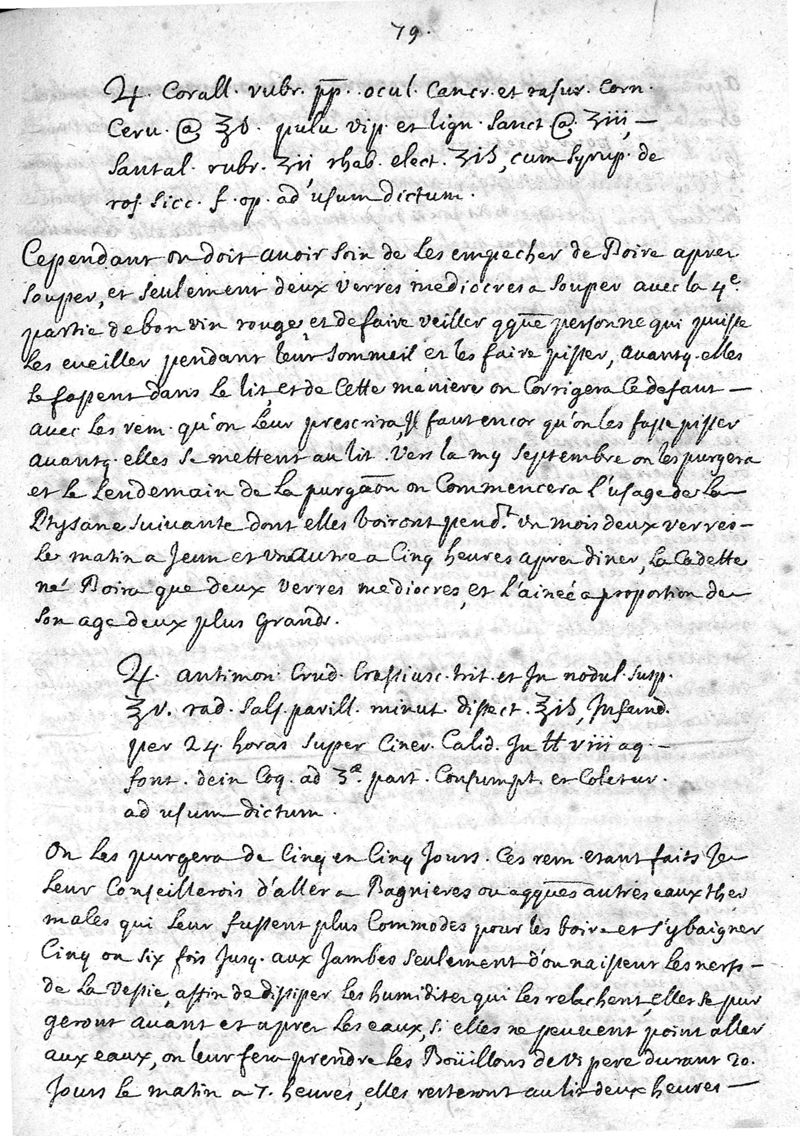 79.
♃. Corall. rubr. pp. ocul. Cancr. et rasur. Corn.
Cerv. @ ʒv. pulv vip. et lign. Sanct @ ʒiii, —
Santal. rubr. ʒii rhab. elect. ʒiß, cum syrup. de
ros sicc. f. op. ad usum dictum.
Cependant on doit avoir soin de les empecher de Boire apres
souper, et seulement deux verres mediocres a souper avec la 4e.
partie de bon vin rouge et de faire veiller qque personne qui puisse
les eveiller pendant leur sommeil et les faire pisser, avantq. elles
le fassent dans le lit, et de Cette maniere on Corrigera Ce defaut —
avec les rem. qu'on leur prescrira, Il faut encor qu'on les fasse pisser
avantq. elles se mettent au lit. Vers la my Septembre on les purgera
et le Lendemain de la purgaon on Commencera l'usage de la
Ptysane suivante dont elles boiront pendt. un mois deux verres —
le matin a Jeun et un autre a Cinq heures apres diner, la Cadette
ne Boira que deux verres mediocres, et l'ainée a proportion de
son age deux plus grands.
♃. antimon. Crud. Crassiusc. trit. et In nodul. susp.
ʒv. rad. Sals. parill. minut. dissect. ʒiß, Infund.
per 24. horas super Ciner. Calid. In ℔ viii aq. —
font. dein Coq. ad 3ae. part. Consumpt. et Coletur.
ad usum dictum.
On les purgera de Cinq en Cinq Jours. Ces rem. etant faits Je
leur Conseillerois d'aller a Bagnieres ou a qques autres eaux ther
males qui leur fussent plus Commodes pour les boire et s'y baigner
Cinq ou six fois Jusq. aux Jambes seulement d'ou naissent les nerfs —
de la Vessie, affin de dissiper les humidites qui les relachent, elles se pur
geront avant et apres les eaux, si elles ne peuvent point aller
aux eaux, on leur fera prendre les Boüillons de vipere durant 20.
Jours le matin a 7. heures, elles resteront au lit deux heures —